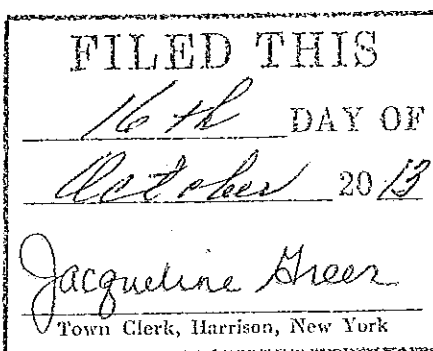 FILED THIS
16th DAY OF
October 20 13
Jacqueline Greer
Town Clerk, Harrison, New York